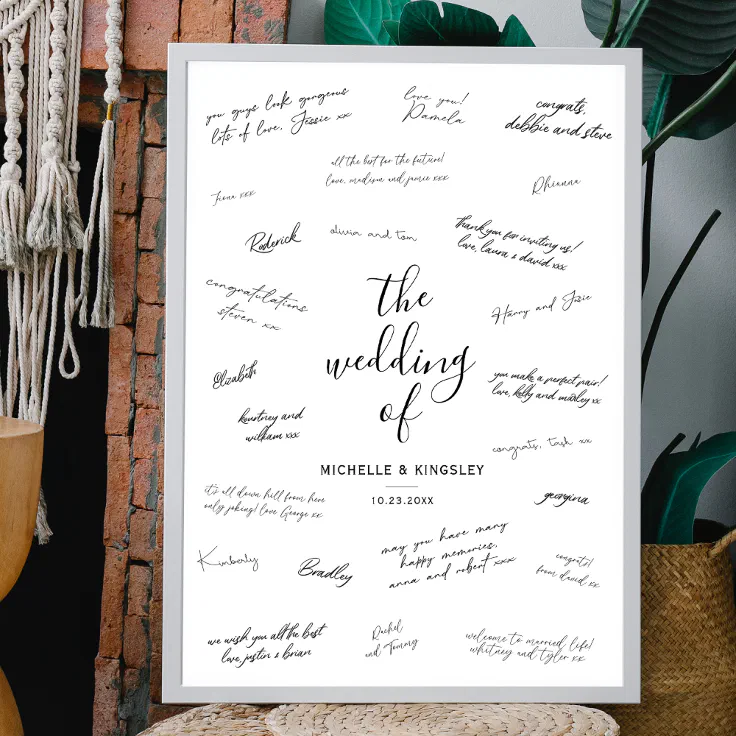 you guys look gorgeous
lots of love, Jessie xx
love you!
Pamela
congrats,
debbie and steve
all the best for the future!
love, madison and jamie xxx
Fiona xxx
Rhianna
Roderick
olivia and tom
thank you for inviting us!
love, laura & david xxx
congratulations
steven xx
the
wedding
of
Harry and Izzie
Elizabeth
you make a perfect pair!
love, kelly and morley xx
kourtney and
william xxx
congrats, tash xx
MICHELLE & KINGSLEY
10.23.20XX
it's all down hill from here
only joking! love George xx
georgina
may you have many
happy memories,
anna and robert xxx
Kimberly
Bradley
congrats!
from david xx
we wish you all the best
love, justin & brian
Rachel
and Tommy
welcome to married life!
whitney and tyler xx